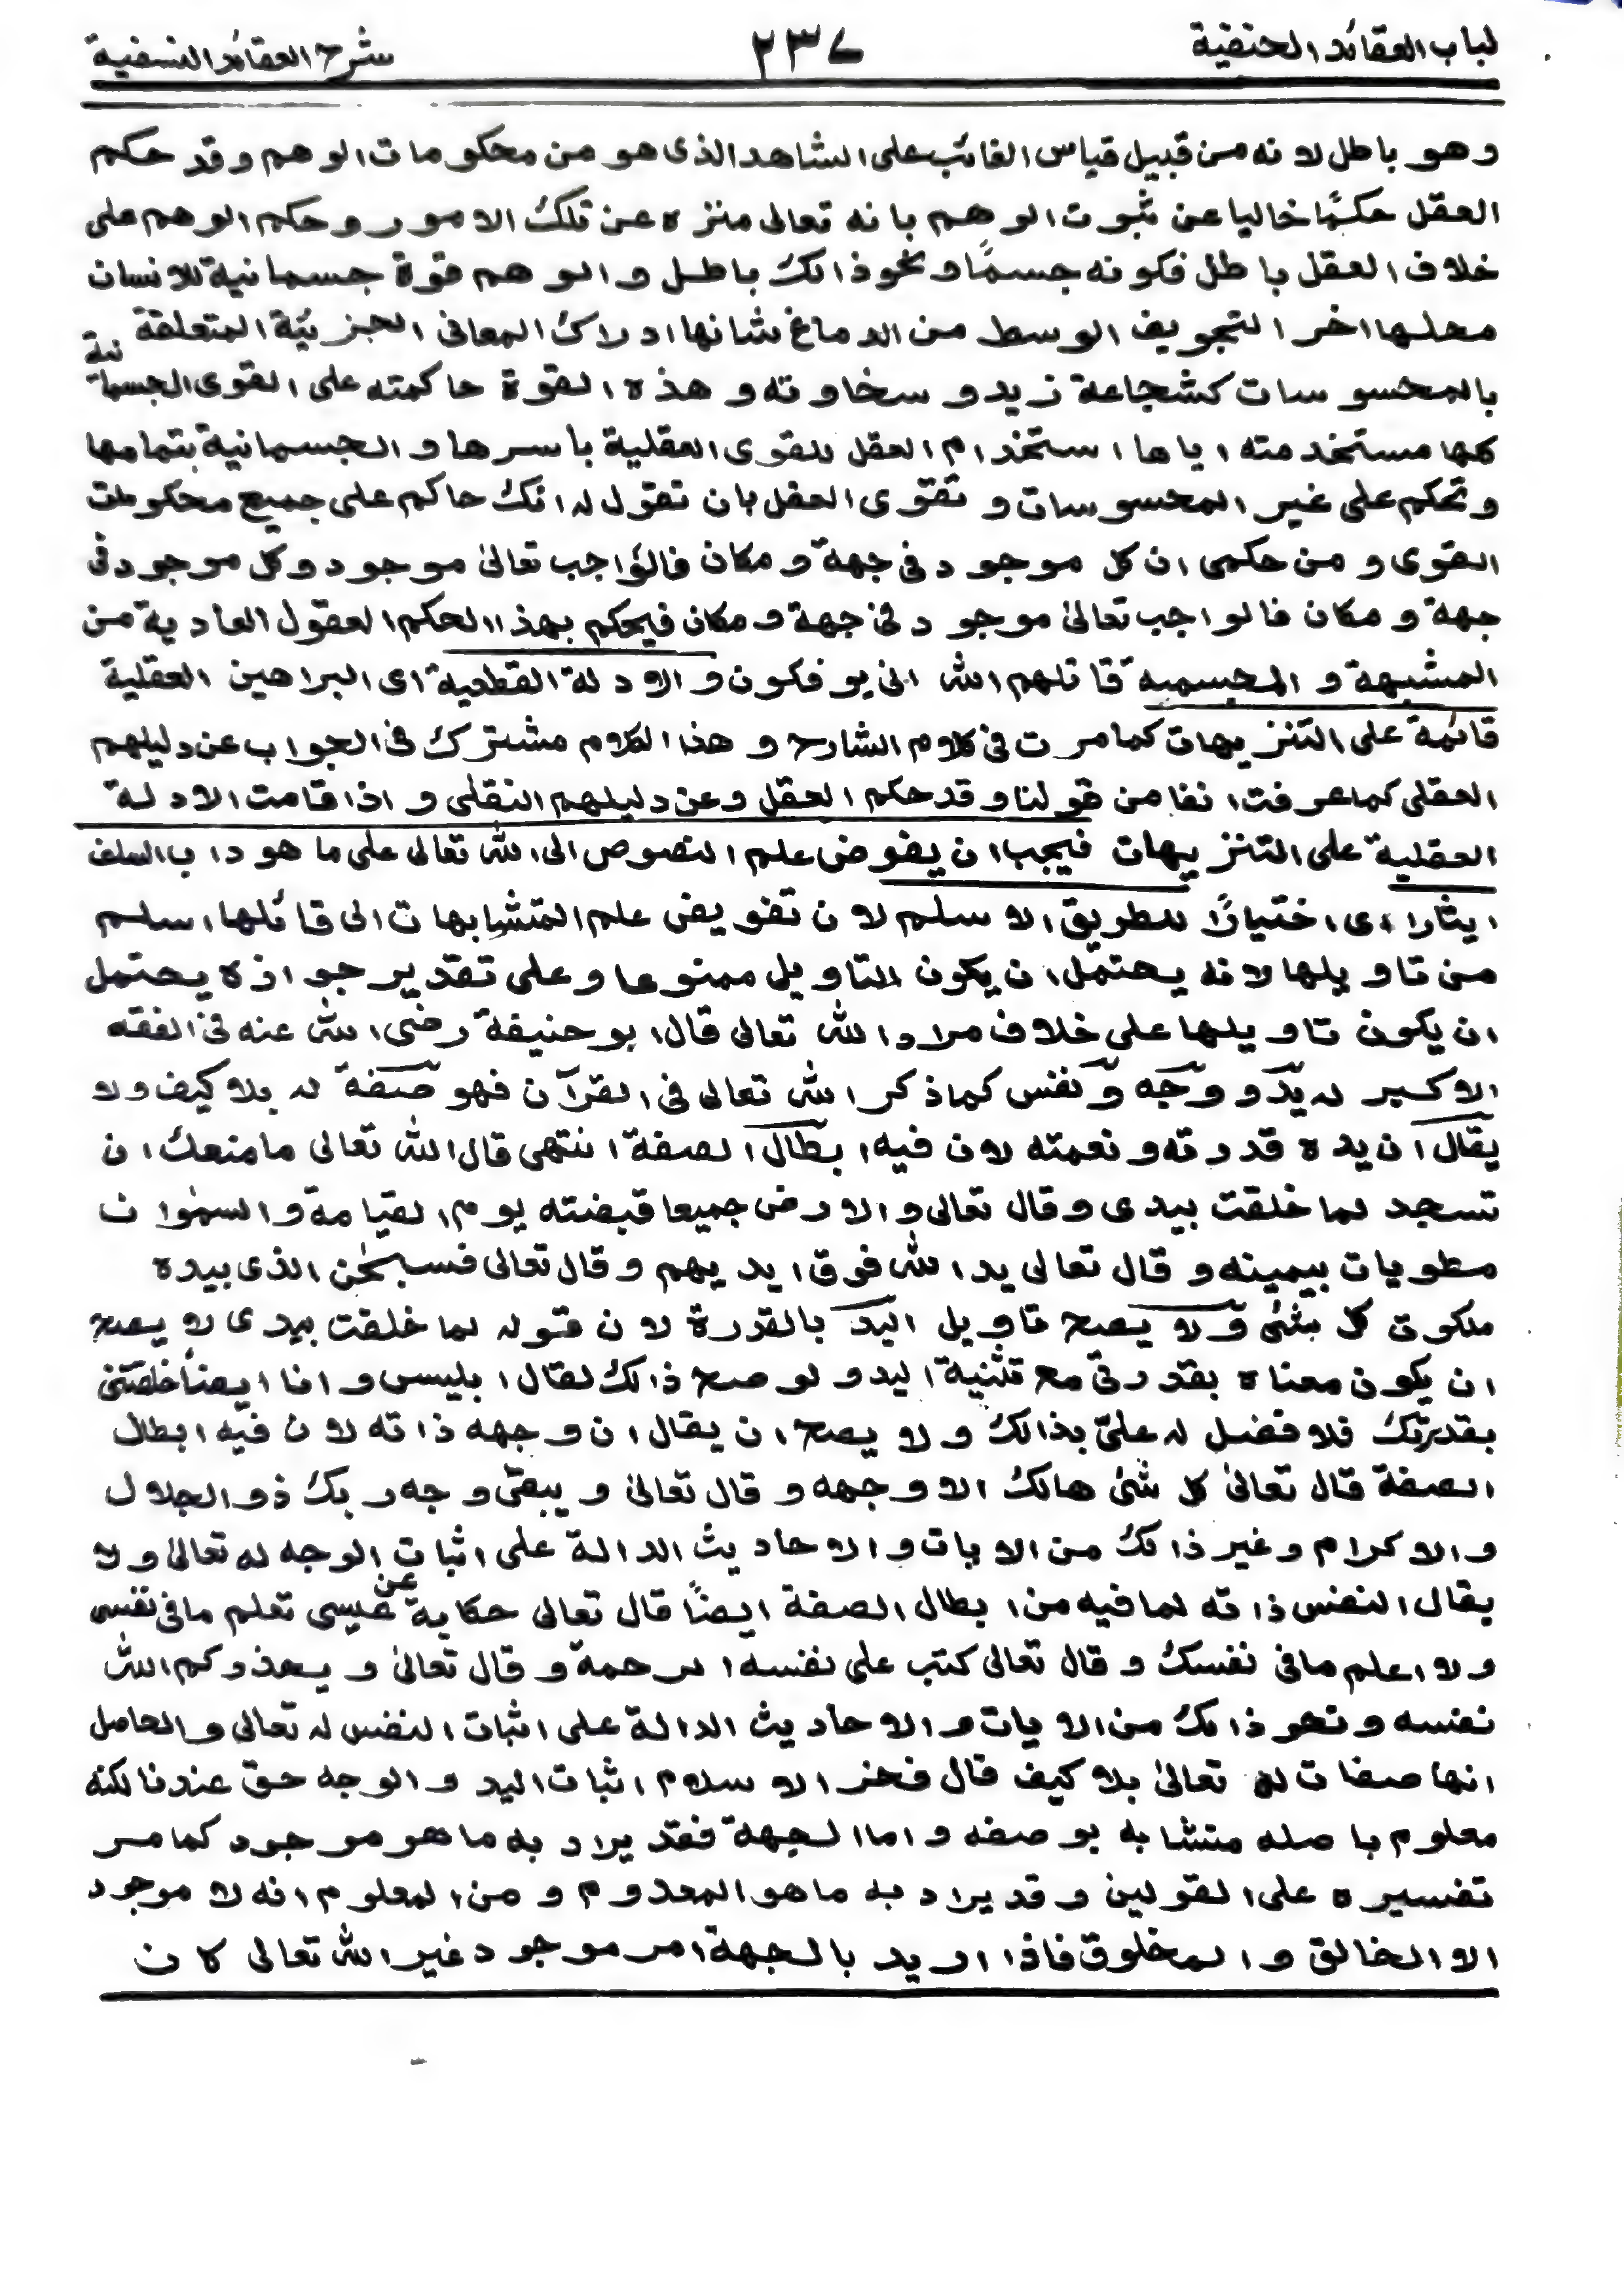 لباب العقائد الحنفية ٢٣٧ شرح العقائد النسفية
وهو باطل لانه من قبيل قياس الغائب على الشاهد الذى هو من محكومات الوهم وقد حكم
العقل حكمًا خاليا عن ثبوت الوهم بانه تعالى منزه عن تلك الامور وحكم الوهم على
خلاف العقل باطل فكونه جسمًا ونحو ذالك باطل والوهم قوة جسمانية للانسان
محلها اخر التجويف الوسط من الدماغ شانها ادراك المعانى الجزئية المتعلقة
بالمحسوسات كشجاعة زيد وسخاوته وهذه القوة حاكمته على القوى الجسمانية
كلها مستخدمته اياها استخدام العقل للقوى العقلية باسرها والجسمانية بتمامها
وتحكم على غير المحسوسات وتقوى العقل بان تقول له انك حاكم على جميع محكومات
القوى ومن حكمى ان كل موجود فى جهة ومكان فالواجب تعالىٰ موجود وكل موجود فى
جهة ومكان فالواجب تعالىٰ موجود فى جهة ومكان فيحكم بهذا الحكم العقول العادية من
المشبهة والمجسمية قاتلهم الله انى يوفكون والادلة القطعية اى البراهين العقلية
قائمة على التنزيهات كما مرت فى كلام الشارح وهذا الكلام مشترك فى الجواب عن دليلهم
العقلى كما عرفت انفا من قولنا وقد حكم العقل وعن دليلهم النقلى واذا قامت الادلة
العقلية على التنزيهات فيجب ان يفوض علم النصوص الى الله تعالى على ما هو داب السلف
ايثارا اى اختيارًا للطريق الاسلم لان تفويض علم المتشابهات الى قائلها اسلم
من تاويلها لانه يحتمل ان يكون التاويل ممنوعا وعلى تقدير جوازه يحتمل
ان يكون تاويلها على خلاف مراد الله تعالى قال ابو حنيفة رضى الله عنه فى الفقه
الاكبر له يد ووجه ونفس كما ذكر الله تعالى فى القرآن فهو صفة له بلا كيف ولا
يقال ان يده قدرته ونعمته لان فيه ابطال الصفة انتهى قال الله تعالى ما منعك ان
تسجد لما خلقت بيدى وقال تعالى والارض جميعا قبضته يوم القيامة والسمٰوات
مطويات بيمينه وقال تعالى يد الله فوق ايديهم وقال تعالى فسبحٰن الذى بيده
ملكوت كل شئى ولا يصح تاويل اليد بالقدرة لان قوله لما خلقت بيدى لا يصح
ان يكون معناه بقدرتى مع تثنية اليد ولو صح ذالك لقال ابليس وانا ايضًا خلقتنى
بقدرتك فلا فضل له علىّ بذالك ولا يصح ان يقال ان وجهه ذاته لان فيه ابطال
الصفة قال تعالىٰ كل شئى هالك الا وجهه وقال تعالىٰ ويبقى وجه ربك ذو الجلال
والاكرام وغير ذالك من الايات والاحاديث الدالة على اثبات الوجه له تعالىٰ ولا
يقال النفس ذاته لما فيه من ابطال الصفة ايضًا قال تعالى حكاية عن عيسى تعلم ما فى نفسى
ولا اعلم ما فى نفسك وقال تعالى كتب على نفسه الرحمة وقال تعالىٰ ويحذركم الله
نفسه ونحو ذالك من الايات والاحاديث الدالة على اثبات النفس له تعالى والحاصل
انها صفات له تعالىٰ بلا كيف قال فخر الاسلام اثبات اليد والوجه حق عندنا لكنه
معلوم باصله متشابه بوصفه واما الجهة فقد يراد به ما هو موجود كما مر
تفسيره على القولين وقد يراد به ما هو المعدوم ومن المعلوم انه لا موجود
الا الخالق والمخلوق فاذا اريد بالجهة امر موجود غير الله تعالى كان